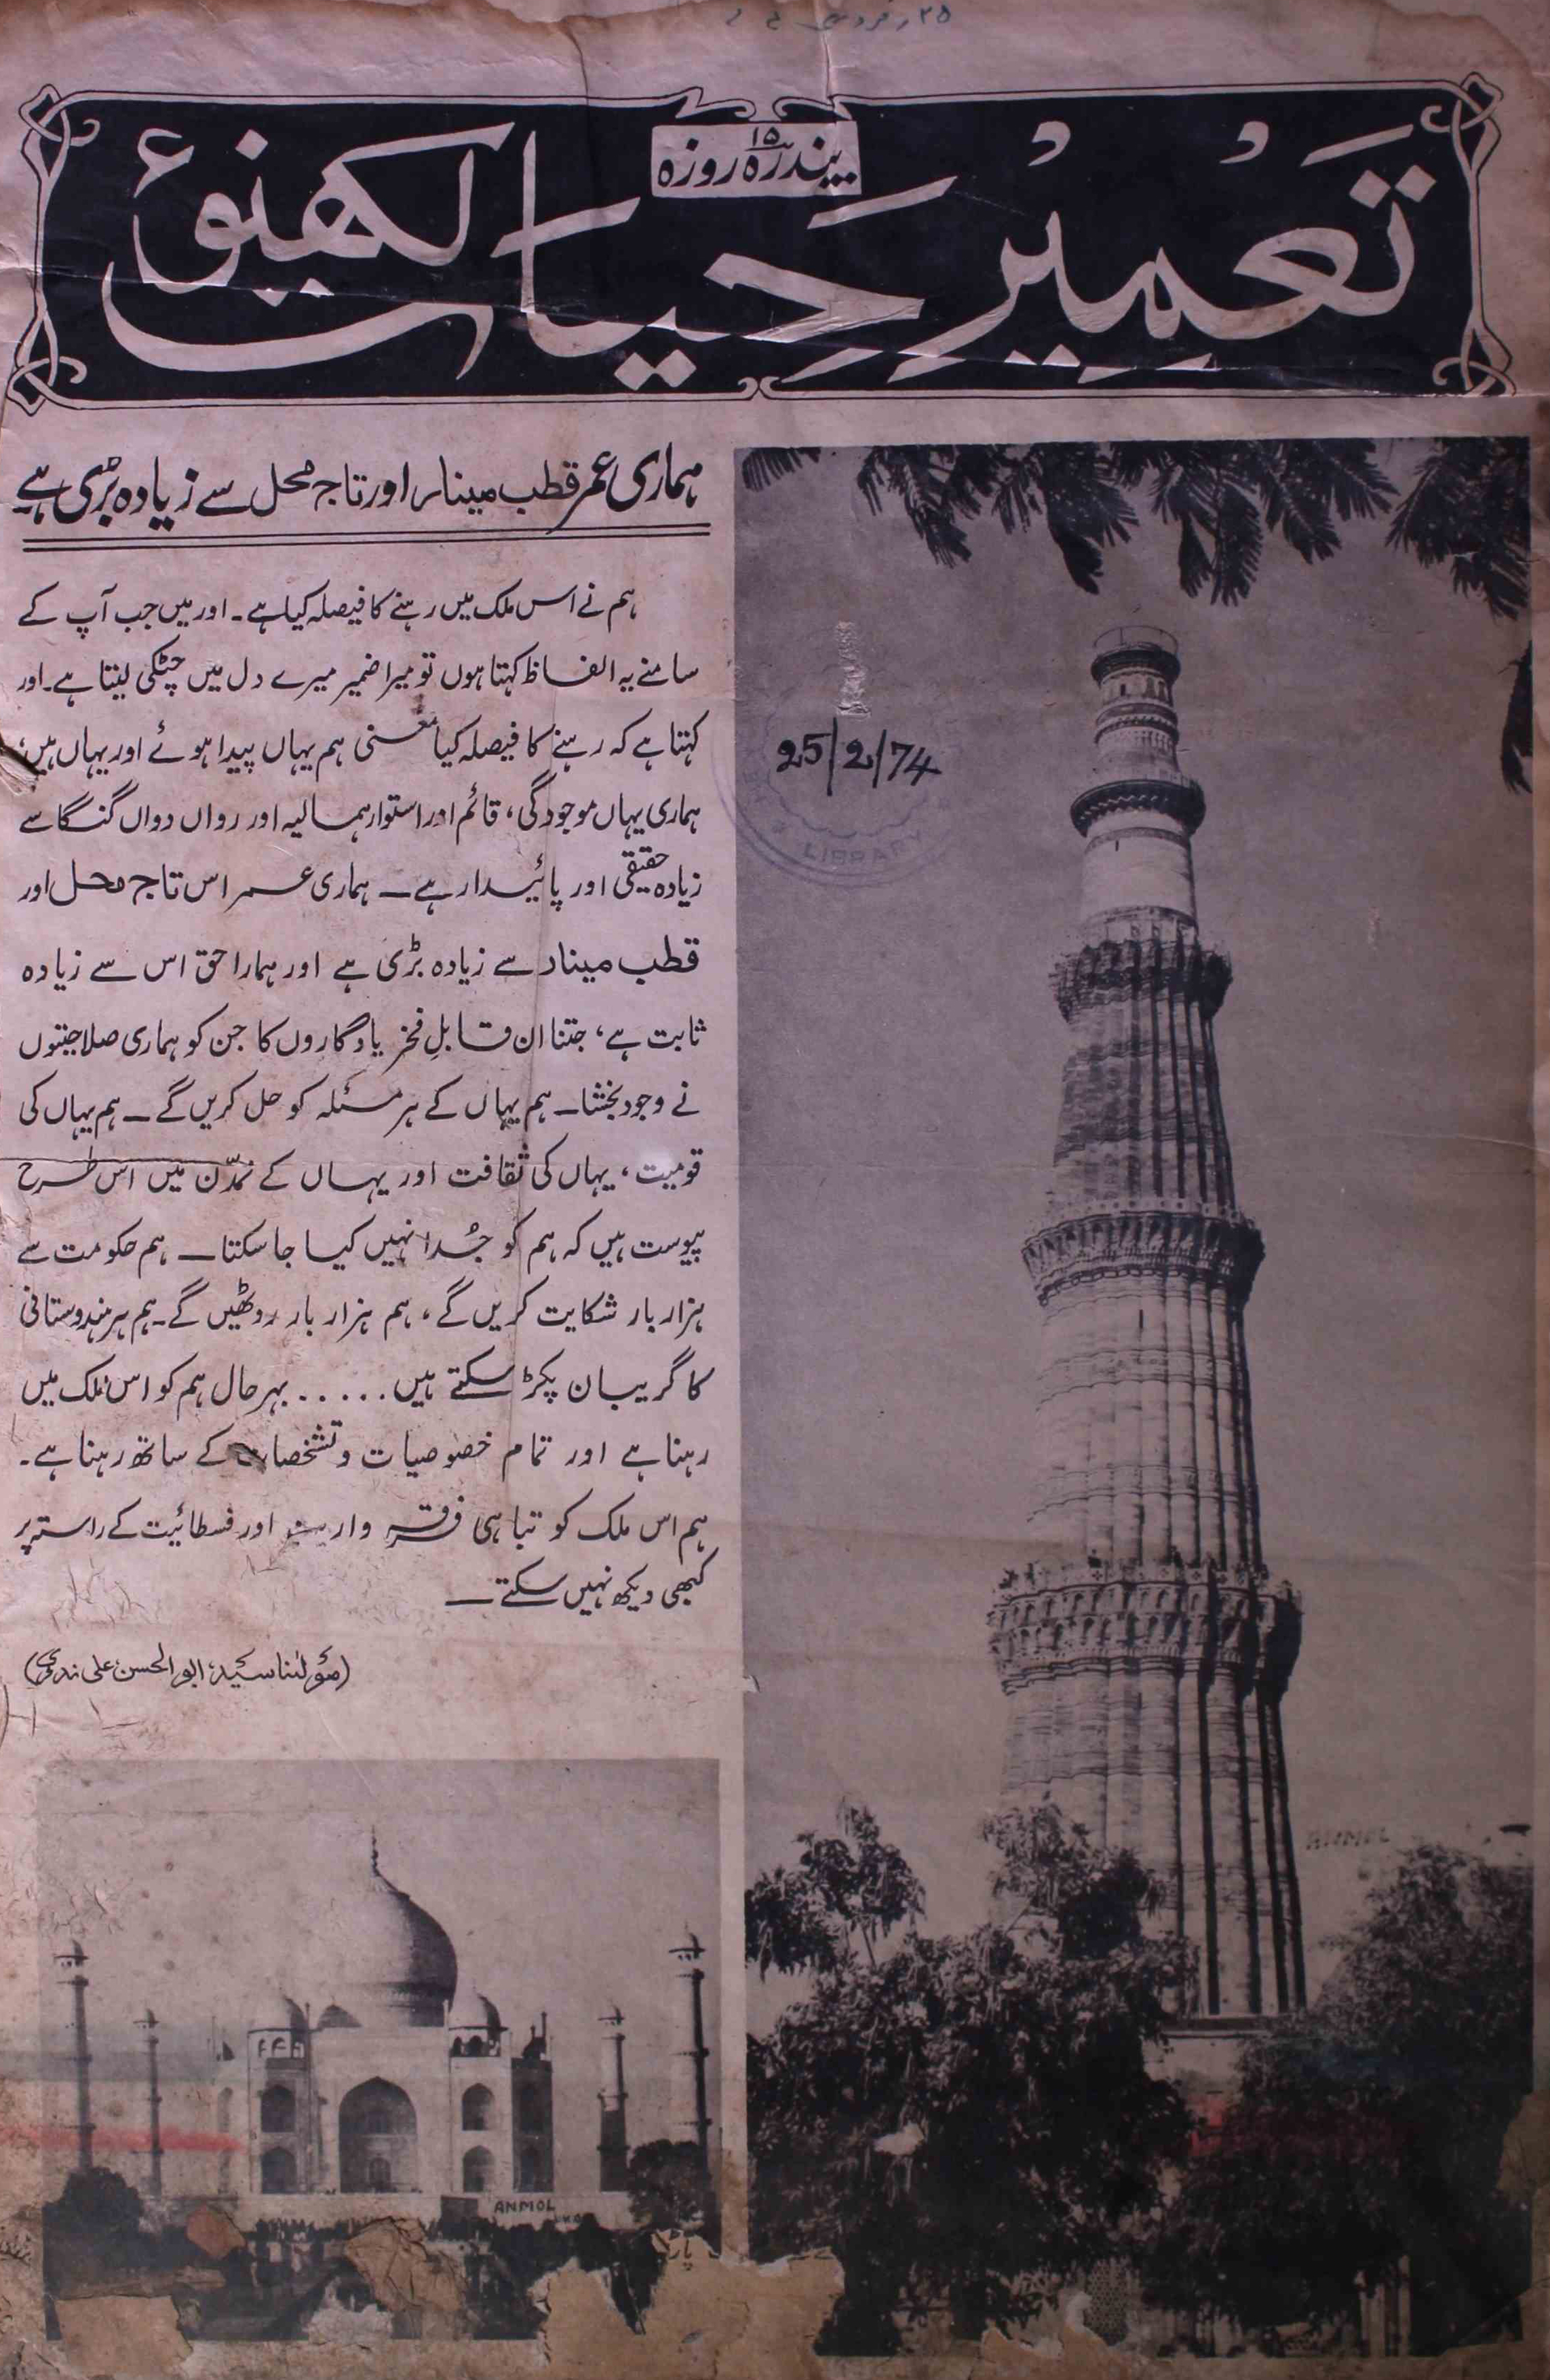 پندرہ ۱۵ روزہ
تعمیر حیات لکھنؤ
ہماری عمر قطب مینار اور تاج محل سے زیادہ بڑی ہے
ہم نے اس ملک میں رہنے کا فیصلہ کیا ہے۔ اور میں جب آپ کے
سامنے یہ الفاظ کہتا ہوں تو میرا ضمیر میرے دل میں چٹکی لیتا ہے۔ اور
کہتا ہے کہ رہنے کا فیصلہ کیا معنی ہم یہاں پیدا ہوئے اور یہاں ہیں،
ہماری یہاں موجودگی، قائم اور استوار ہمالیہ اور رواں دواں گنگا سے
زیادہ حقیقی اور پائیدار ہے ـ ہماری عمر اس تاج محل اور
قطب مینار سے زیادہ بڑی ہے اور ہمارا حق اس سے زیادہ
ثابت ہے، جتنا ان قابلِ فخر یادگاروں کا جن کو ہماری صلاحیتوں
نے وجود بخشا ـ ہم یہاں کے ہر مسئلہ کو حل کریں گے ـ ہم یہاں کی
قومیت، یہاں کی ثقافت اور یہاں کے تمدّن میں اس طرح
پیوست ہیں کہ ہم کو جُدا نہیں کیا جا سکتا ـ ہم حکومت سے
ہزار بار شکایت کریں گے، ہم ہزار بار روٹھیں گے۔ ہم ہر ہندوستانی
کا گریبان پکڑ سکتے ہیں ..... بہر حال ہم کو اس ملک میں
رہنا ہے اور تمام خصوصیات و تشخصات کے ساتھ رہنا ہے۔
ہم اس ملک کو تباہی فرقہ واریت اور فسطائیت کے راستہ پر
کبھی دیکھ نہیں سکتے ـ
(مولٰنا سید ابوالحسن علی ندوی)
25/2/74
LIBRARY
ANMOL
ANMOL